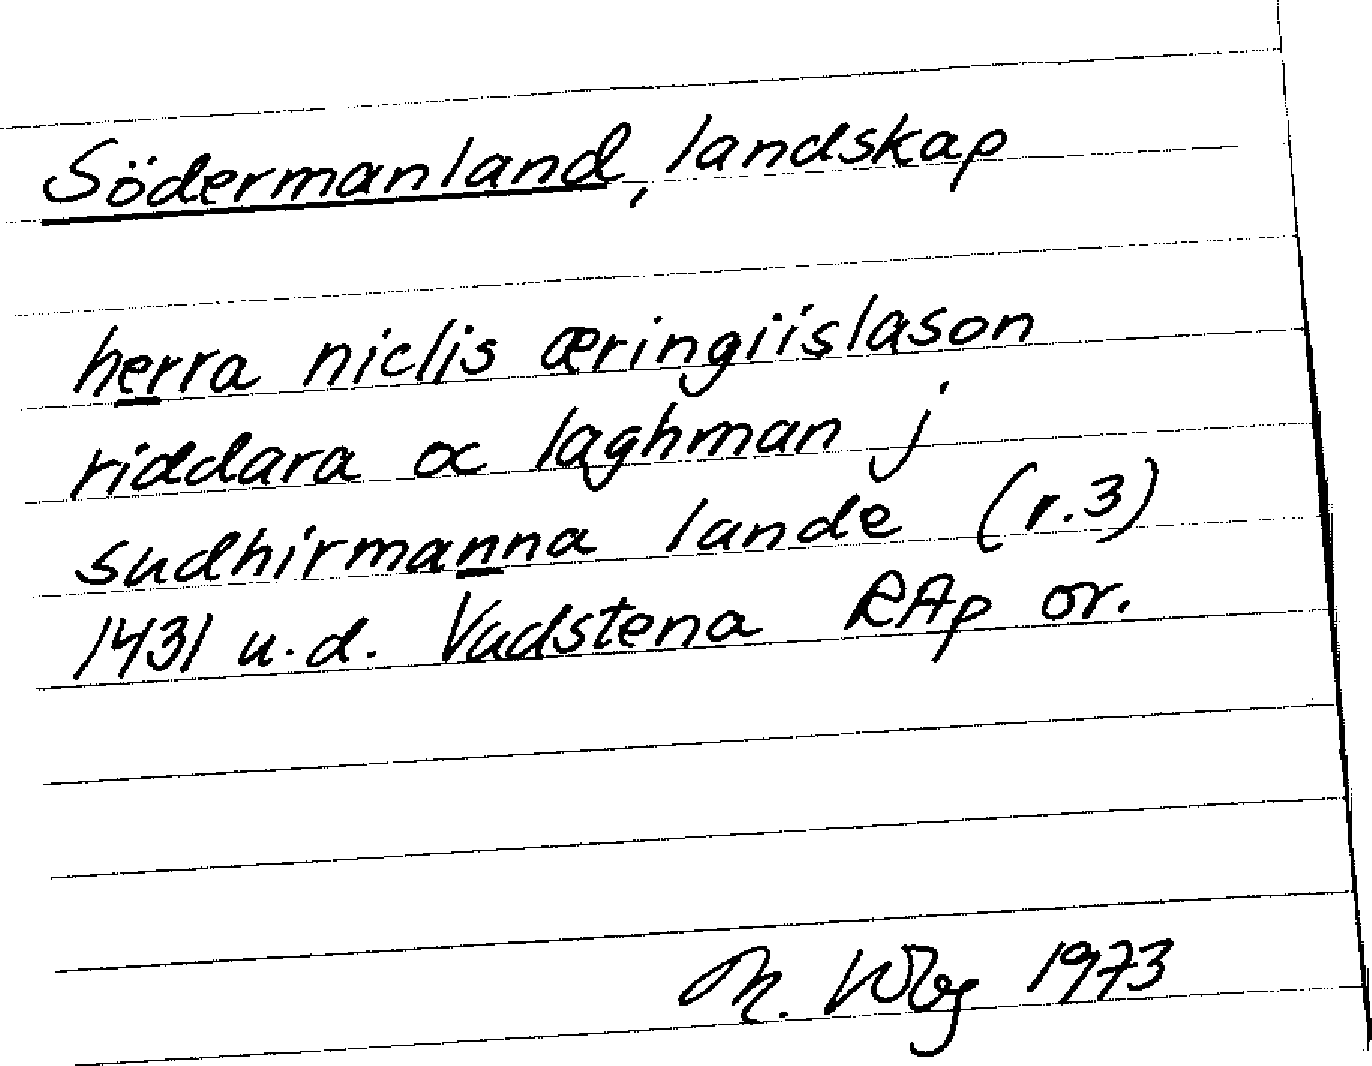 Södermanland, landskap
herra niclis æringiislason
riddara oc laghman j
sudhirmanna lande (r.3)
1431 u.d. Vadstena RAp or.
M. Wbg 1973